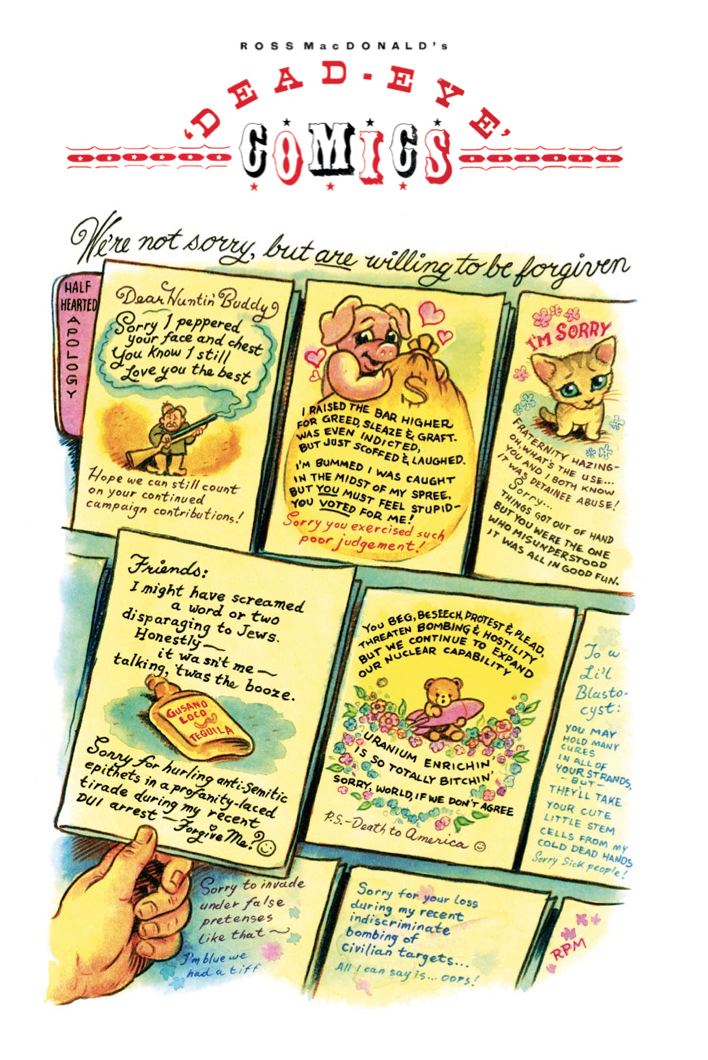 ROSS MacDONALD's
'DEAD-EYE'
COMICS
We're not sorry, but are willing to be forgiven
HALF
HEARTED
APOLOGY
Dear Huntin' Buddy,
Sorry I peppered
your face and chest
You know I still
Love you the best
Hope we can still count
on your continued
campaign contributions!
$
I RAISED THE BAR HIGHER
FOR GREED, SLEAZE & GRAFT.
WAS EVEN INDICTED,
BUT JUST SCOFFED & LAUGHED.
I'M BUMMED I WAS CAUGHT
IN THE MIDST OF MY SPREE,
BUT YOU MUST FEEL STUPID-
YOU VOTED FOR ME!
Sorry you exercised such
poor judgement!
I'M SORRY
FRATERNITY HAZING-
OH, WHAT'S THE USE...
YOU AND I BOTH KNOW
IT WAS DETAINEE ABUSE!
Sorry...
THINGS GOT OUT OF HAND
BUT YOU WERE THE ONE
WHO MISUNDERSTOOD
IT WAS ALL IN GOOD FUN.
Friends:
I might have screamed
a word or two
disparaging to Jews.
Honestly—
it wasn't me—
talking, 'twas the booze.
GUSANO
LOCO
TEQUILA
Sorry for hurling anti-Semitic
epithets in a profanity-laced
tirade during my recent
DUI arrest — Forgive Me?
YOU BEG, BESEECH, PROTEST & PLEAD,
THREATEN BOMBING & HOSTILITY
BUT WE CONTINUE TO EXPAND
OUR NUCLEAR CAPABILITY
URANIUM ENRICHIN'
IS SO TOTALLY BITCHIN'
SORRY, WORLD, IF WE DON'T AGREE
P.S.-Death to America
To a
Li'l
Blasto-
cyst:
YOU MAY
HOLD MANY
CURES
IN ALL OF
YOUR STRANDS,
- BUT -
THEY'LL TAKE
YOUR CUTE
LITTLE STEM
CELLS FROM MY
COLD DEAD HANDS
Sorry Sick people!
Sorry to invade
under false
pretenses
like that~
I'm blue we
had a tiff
Sorry for your loss
during my recent
indiscriminate
bombing of
Civilian targets...
All I can say is... oops!
RPM